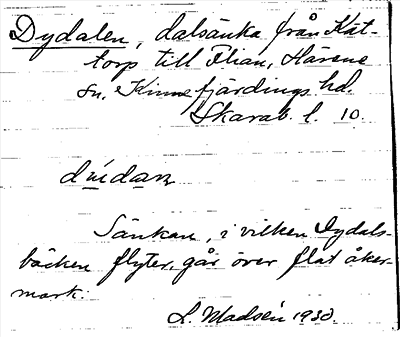 Dydalen, dalsänka från Kät-
torp till Flian, Härene
sn, Kinnefjärdings hd.
Skarab. l. 10.
Sänkan, i vilken Dydals-
bäcken flyter, går över flat åker-
mark.
L. Madsén 1930.